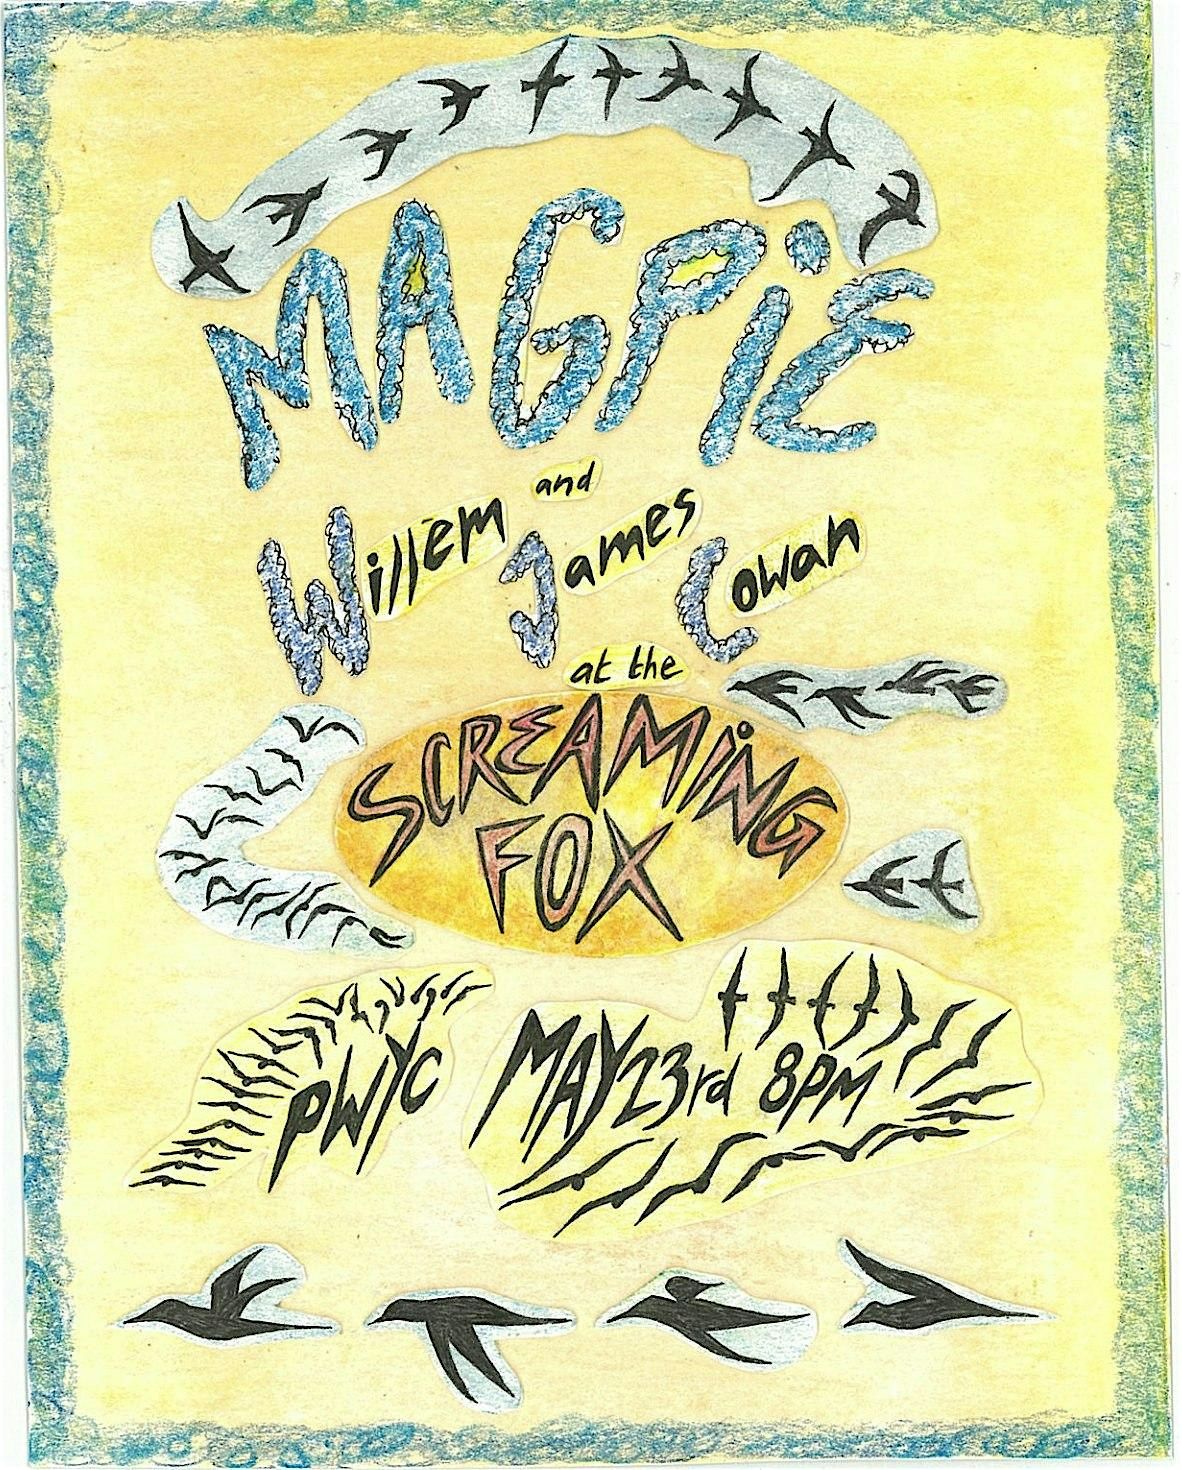 MAGPiE
and
Willem James Cowan
at the
SCREAMiNG
FOX
PWYC MAY 23rd 8PM